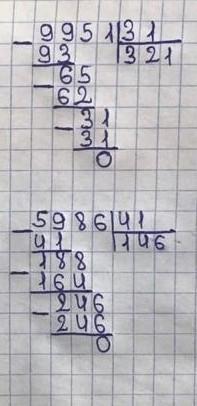 9951|31
93 321
65
62
31
31
0
5986|41
41 146
188
164
246
246
0